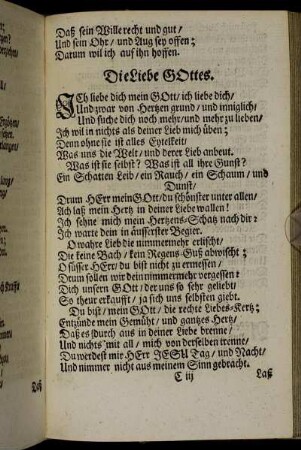 Daß sein Wille recht und gut/
Und sein Ohr/ und Aug sey offen;
Darum wil ich auf ihn hoffen.
Die Liebe GOttes.
ICh liebe dich mein GOtt/ ich liebe dich/
Und zwar von Hertzen grund/ und inniglich/
Und suche dich noch mehr/ und mehr zu lieben/
Ich wil in nichts als deiner Lieb mich üben;
Denn ohne sie ist alles Eytelkeit/
Was uns die Welt/ und derer Lieb anbeut.
Was ist sie selbst? Was ist all ihre Gunst?
Ein Schatten Leid/ ein Rauch/ ein Schaum/ und
Dunst/
Drum HErr mein GOtt/ du schönster unter allen/
Ich laß mein Hertz in deiner Liebe wallen/
Ich sehne mich mein Hertzens-Schatz nach dir?
Ich warte dein in äusserster Begier.
O wahre Lieb die nimmermehr erlischt/
Die keine Bach/ kein Regens-Guß abwischt;
O süsser HErr/ du bist nicht zu ermessen/
Drum sollen wir dein nimmermehr vergessen?
Dich unsern GOtt/ der uns so sehr geliebt/
So theur erkaufft/ ja sich uns selbsten giebt.
Du bist/ mein GOtt/ die rechte Liebes-Kertz;
Entzünde mein Gemüht/ und gantzes Hertz/
Daß es durch aus in deiner Liebe brenne/
Und nichts mit all/ mich von derselben trenne/
Du werdest mir HErr JESU Tag/ und Nacht/
Und nimmer nicht aus meinem Sinn gebracht.
C iij Laß